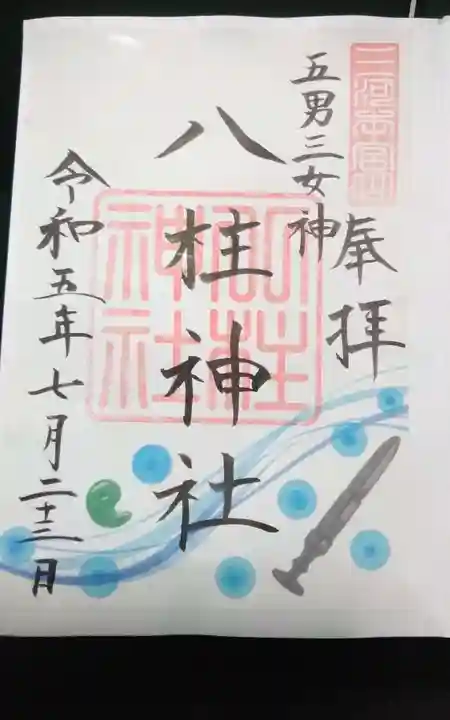 奉拝
五男三女神
八柱神社
八柱神社
令和五年七月二十三日